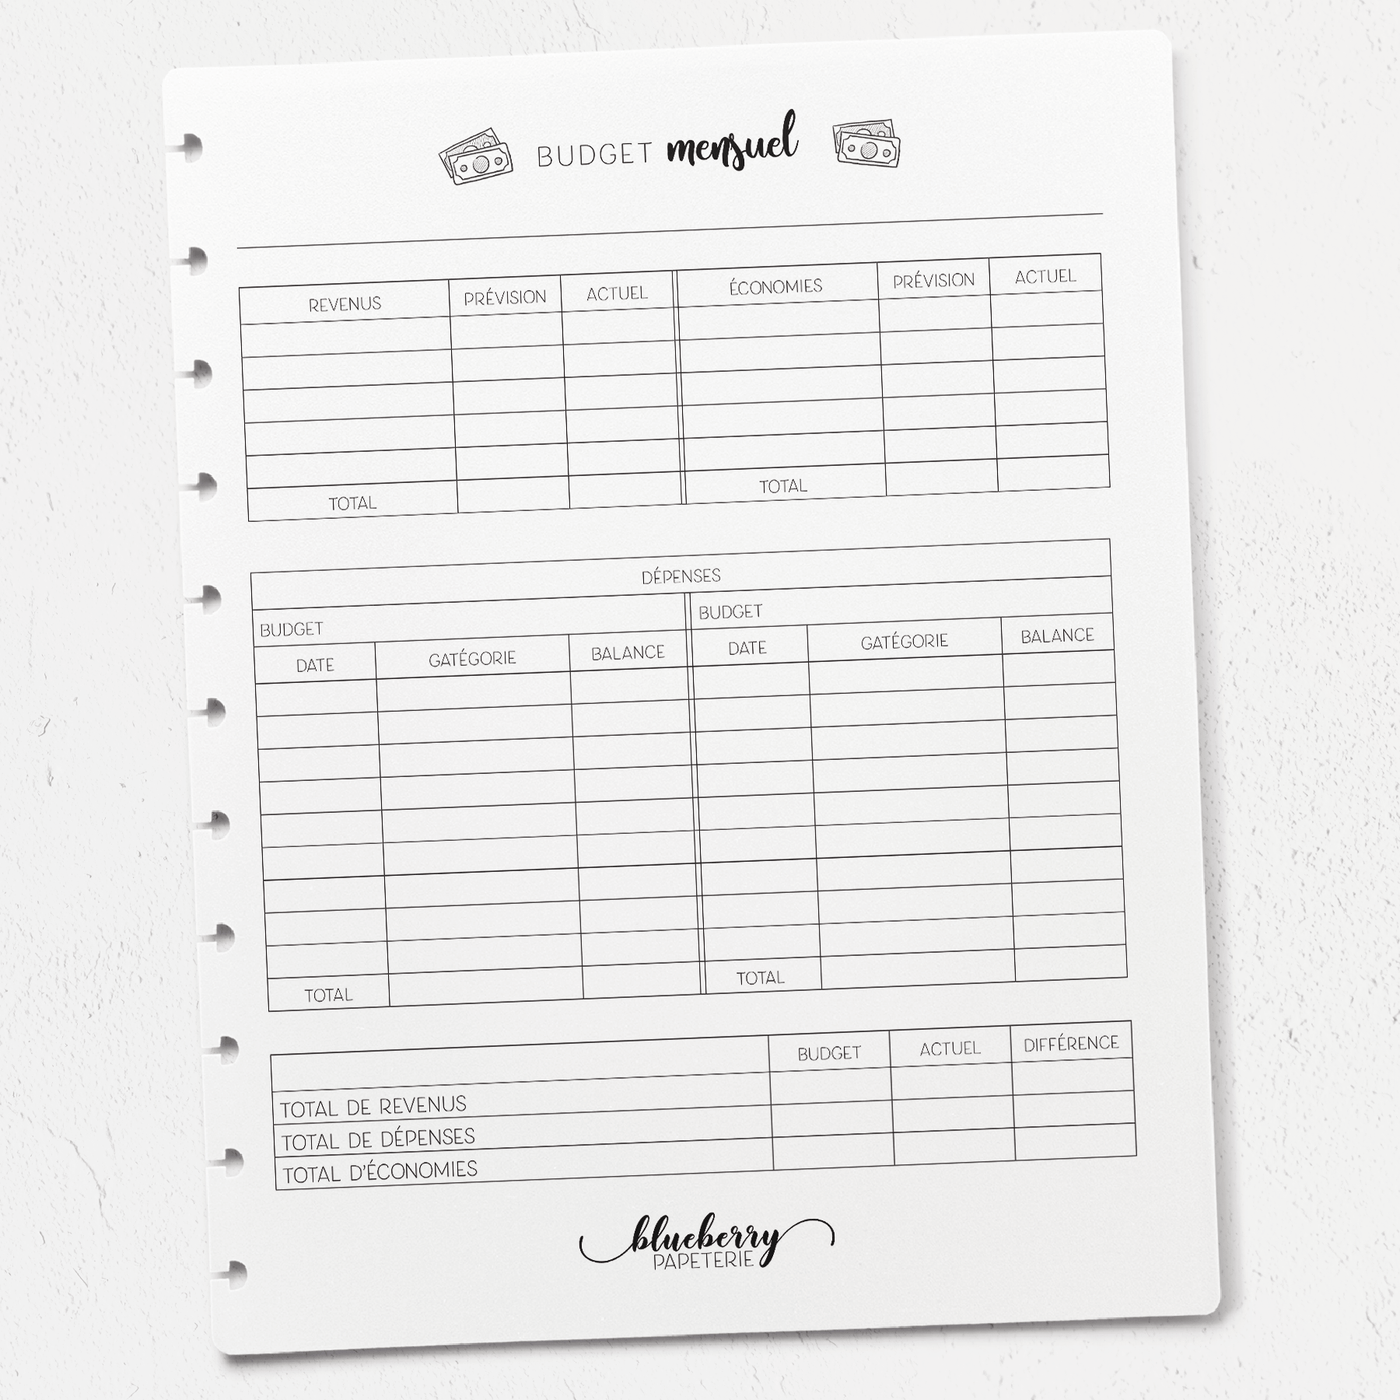 BUDGET mensuel
REVENUS PRÉVISION ACTUEL ÉCONOMIES PRÉVISION ACTUEL
TOTAL TOTAL
DÉPENSES
BUDGET BUDGET
DATE GATÉGORIE BALANCE DATE GATÉGORIE BALANCE
TOTAL TOTAL
BUDGET ACTUEL DIFFÉRENCE
TOTAL DE REVENUS
TOTAL DE DÉPENSES
TOTAL D'ÉCONOMIES
blueberry
PAPETERIE